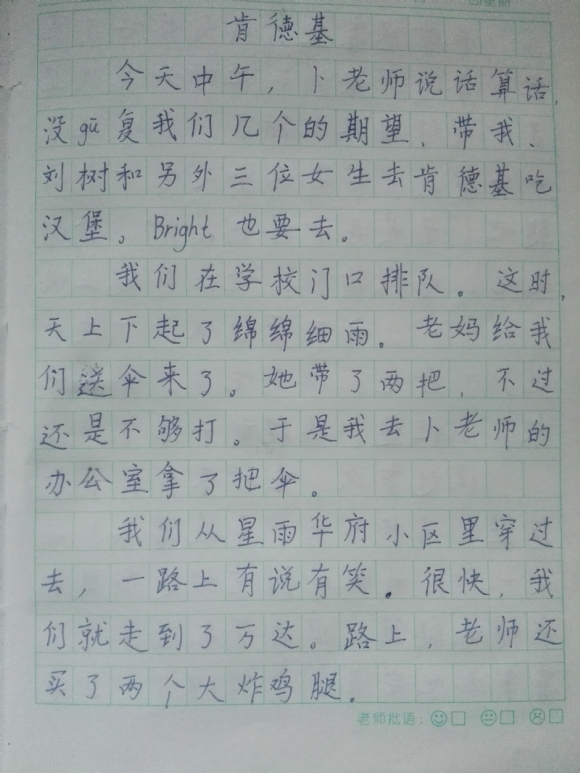 肯德基
今天中午，卜老师说话算话，
没gū复我们几个的期望，带我、
刘树和另外三位女生去肯德基吃
汉堡。Bright 也要去。
我们在学校门口排队。这时，
天上下起了绵绵细雨。老妈给我
们送伞来了。她带了两把，不过
还是不够打。于是我去卜老师的
办公室拿了把伞。
我们从星雨华府小区里穿过
去，一路上有说有笑。很快，我
们就走到了万达。路上，老师还
买了两个大炸鸡腿。
老师批语：